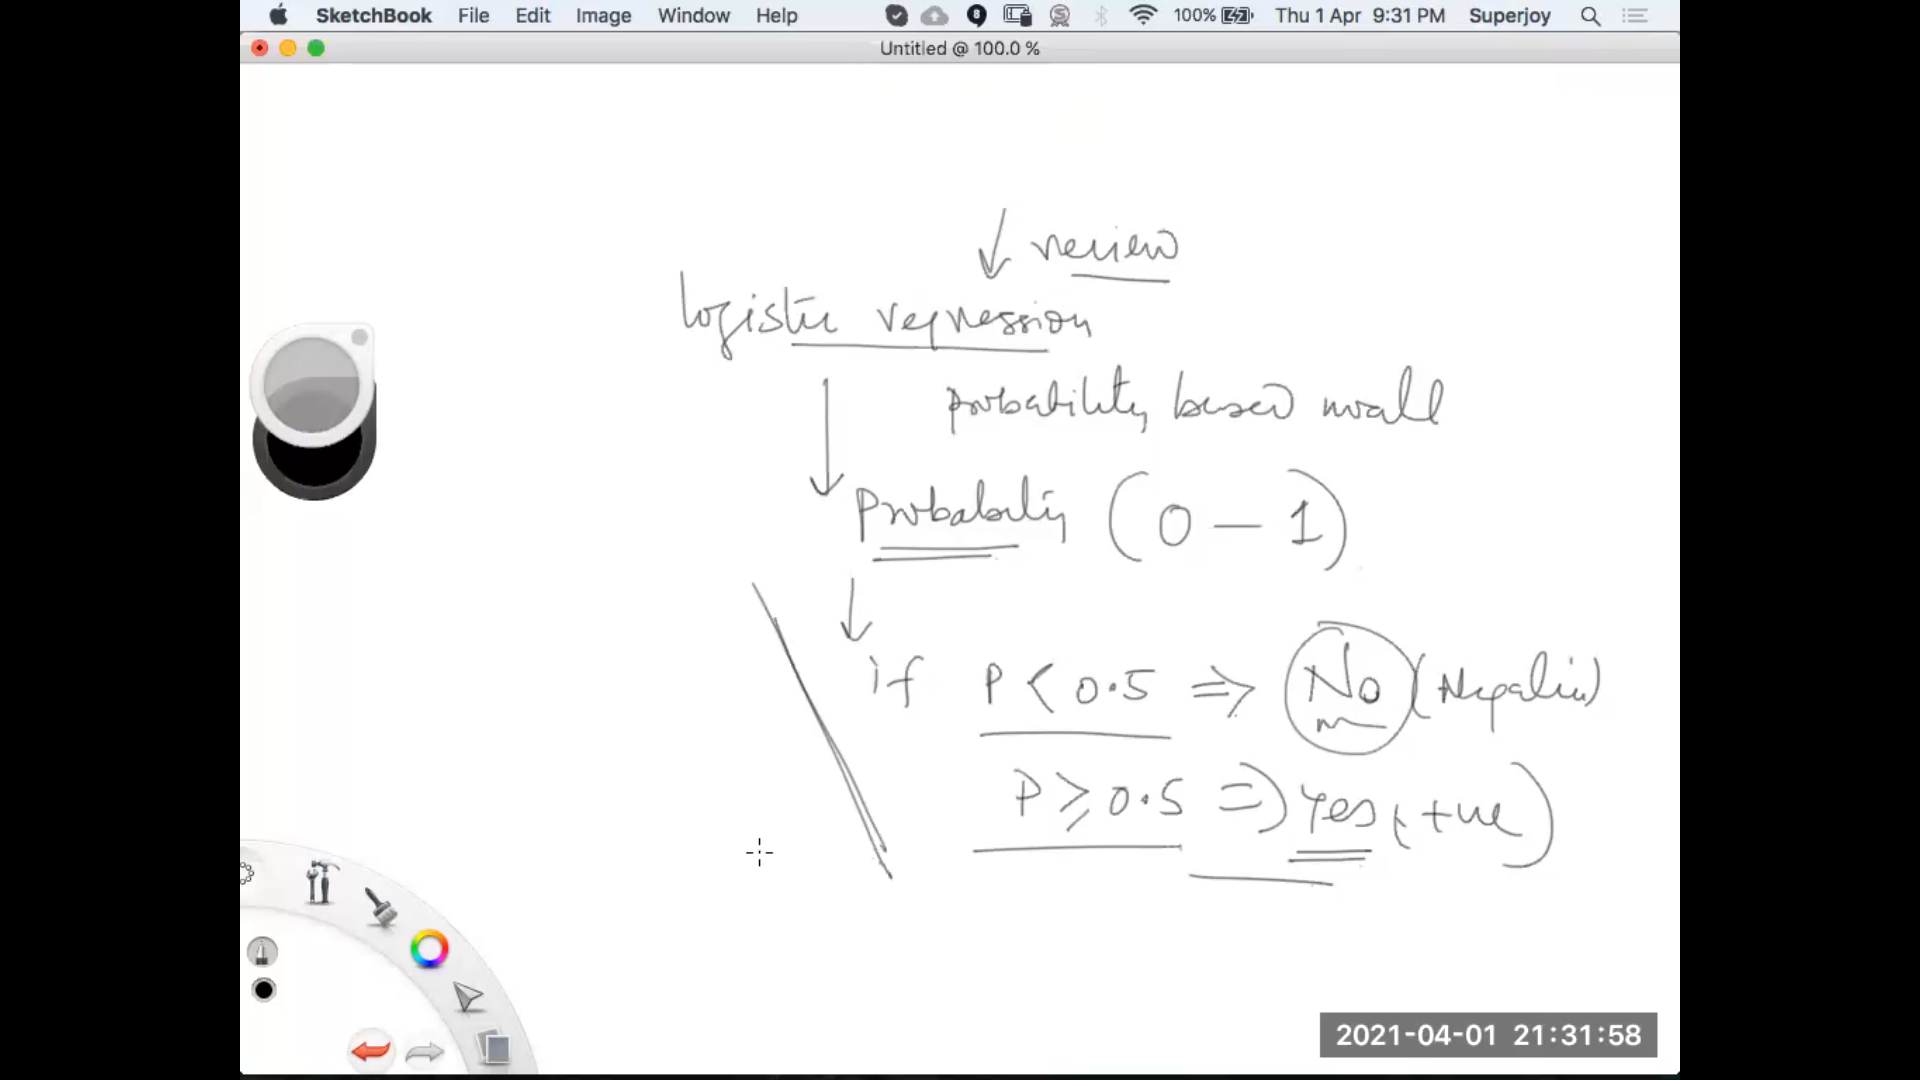 SketchBook File Edit Image Window Help 100% Thu 1 Apr 9:31 PM Superjoy
Untitled @ 100.0 %
review
logistic regression
probability based model
Probability (0 - 1)
if P < 0.5 => No (Negative)
P ≥ 0.5 => Yes (+ve)
2021-04-01 21:31:58